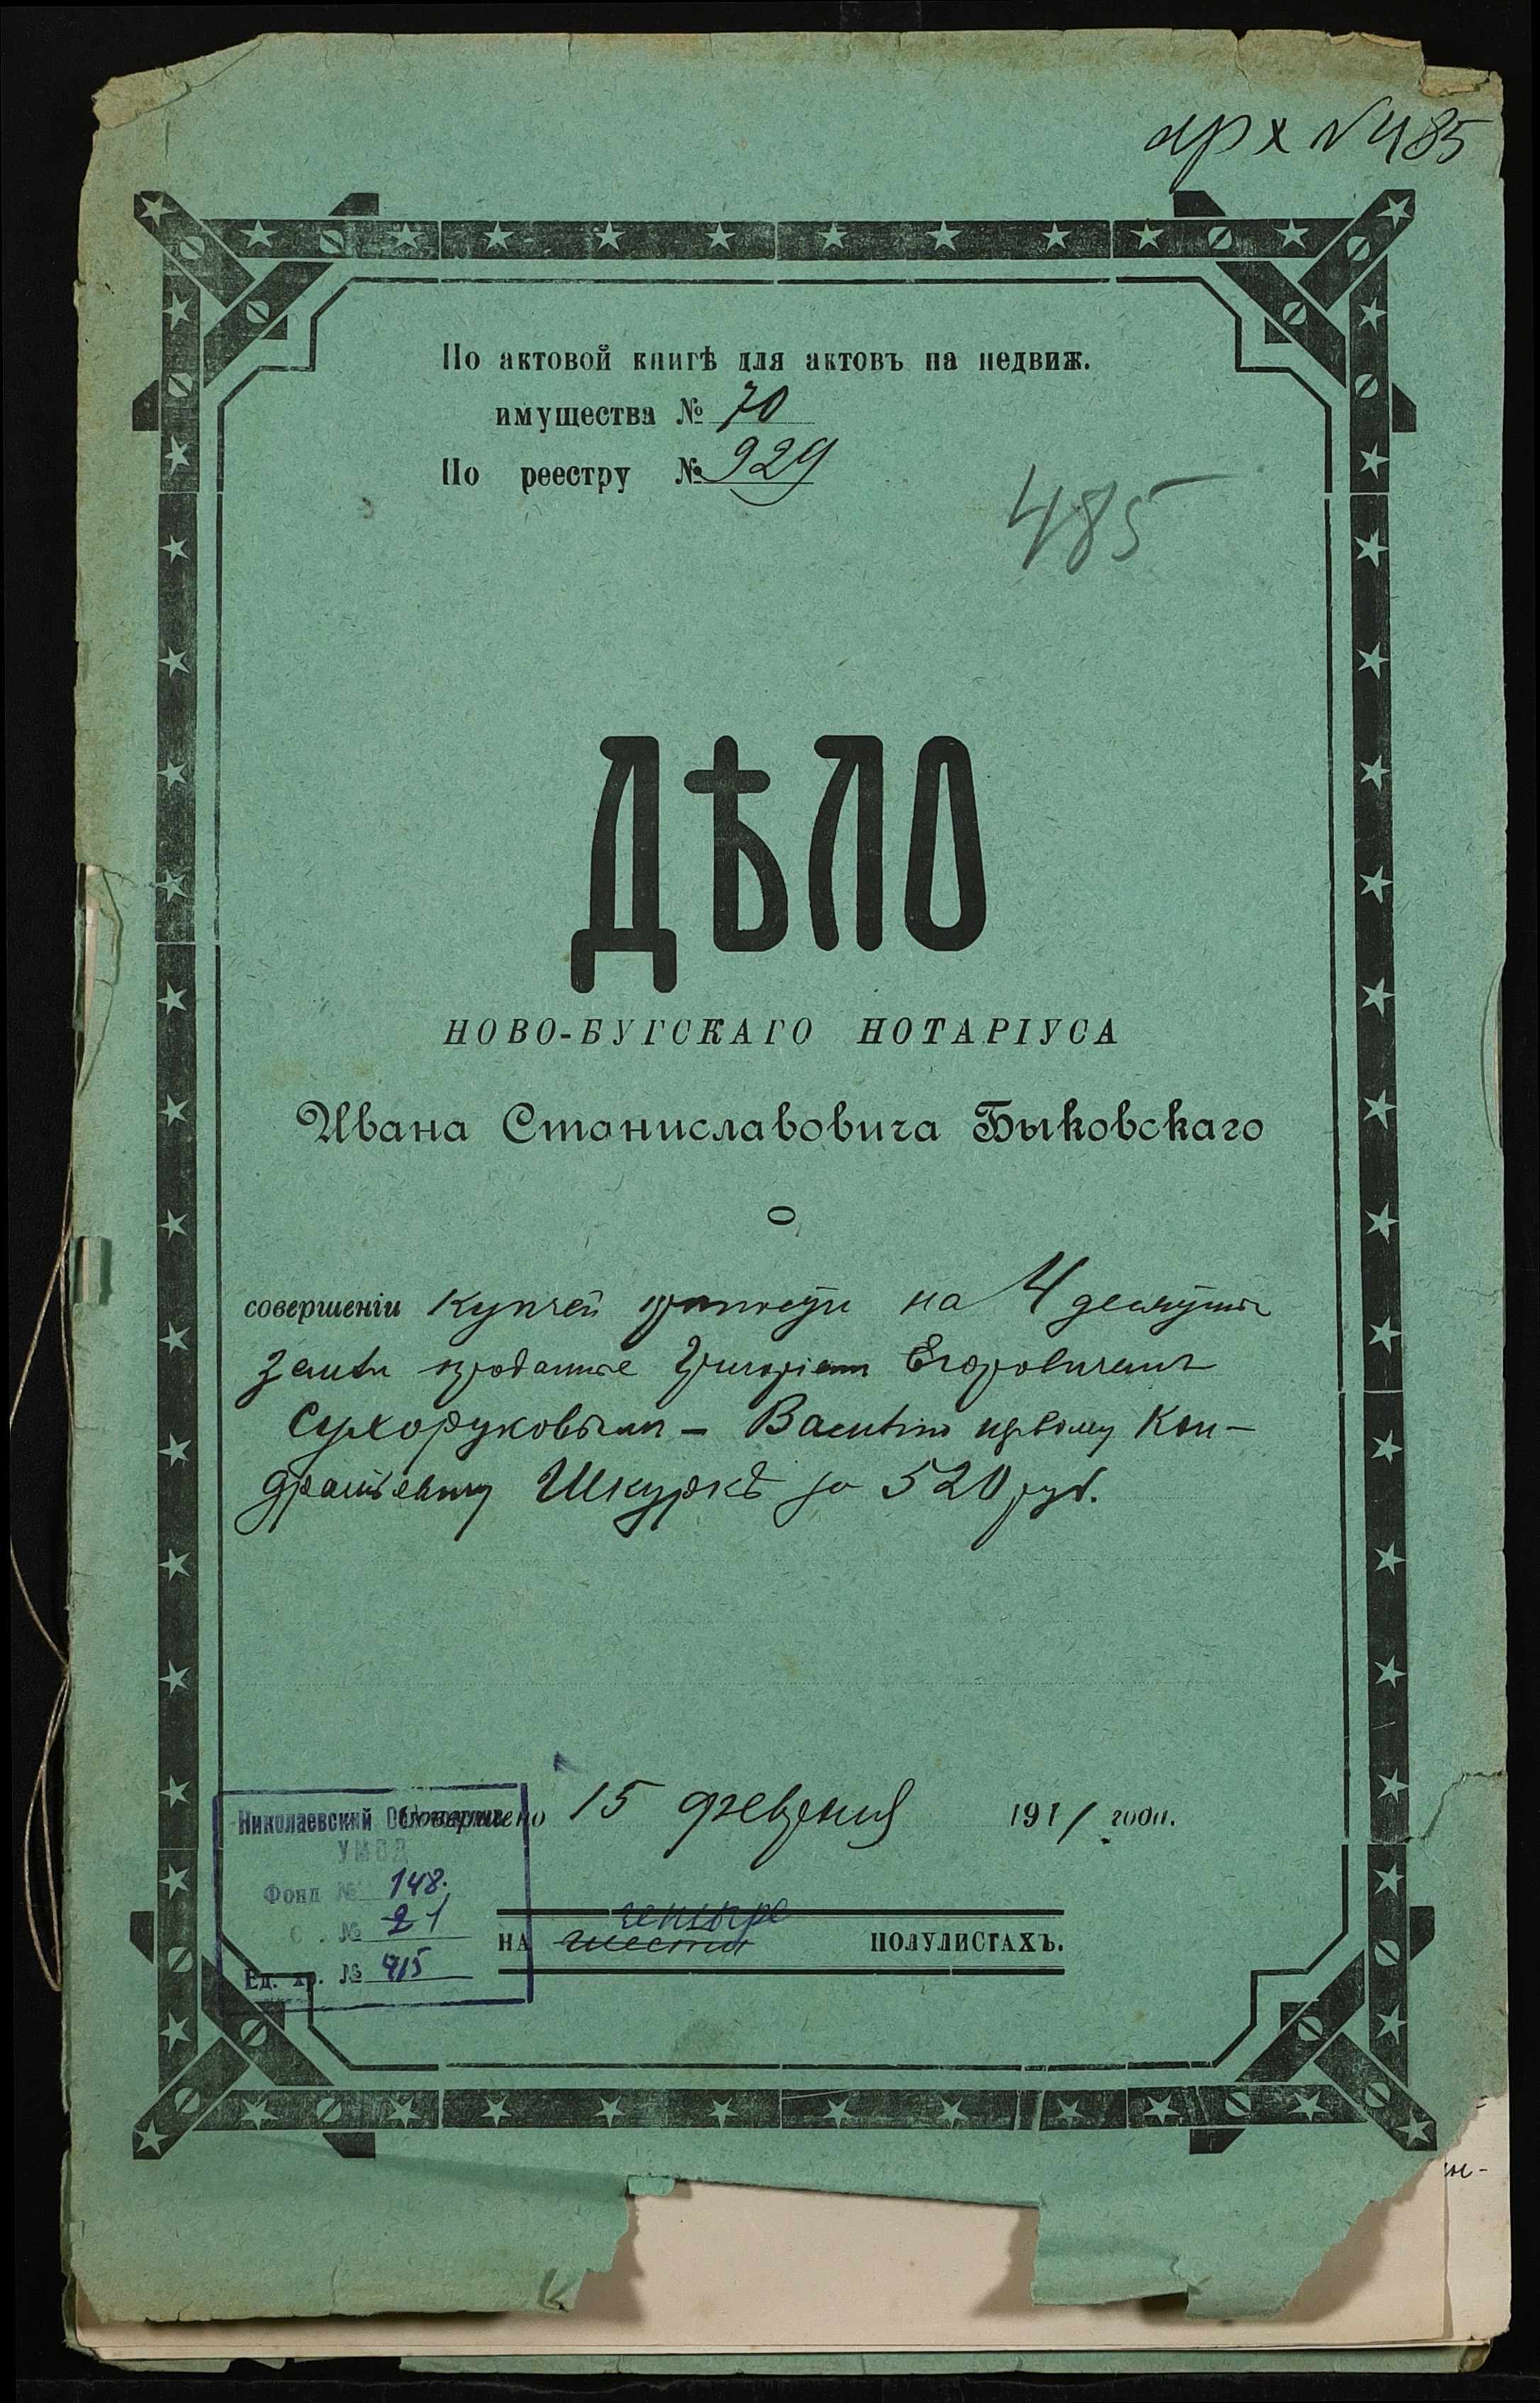 арх №485
По актовой книгѣ для актовъ на недвиж.
имущества № 70
По реестру № 929
485
ДѢЛО
НОВО-БУГСКАГО НОТАРІУСА
Ивана Станиславовича Быковскаго
О
совершеніи купчей крѣпости на 4 десятины
земли проданные Григоріемъ Егоровичемъ
Сухоруковымъ – Василію первому Кон-
дратьевичу Шкуркѣ за 520 руб.
Совершено 15 февраля 1911 года.
НА шести четыре ПОЛУЛИСТАХЪ.
Николаевский
УМВД
Фонд № 148.
О . № 21
Ед. хр. № 415